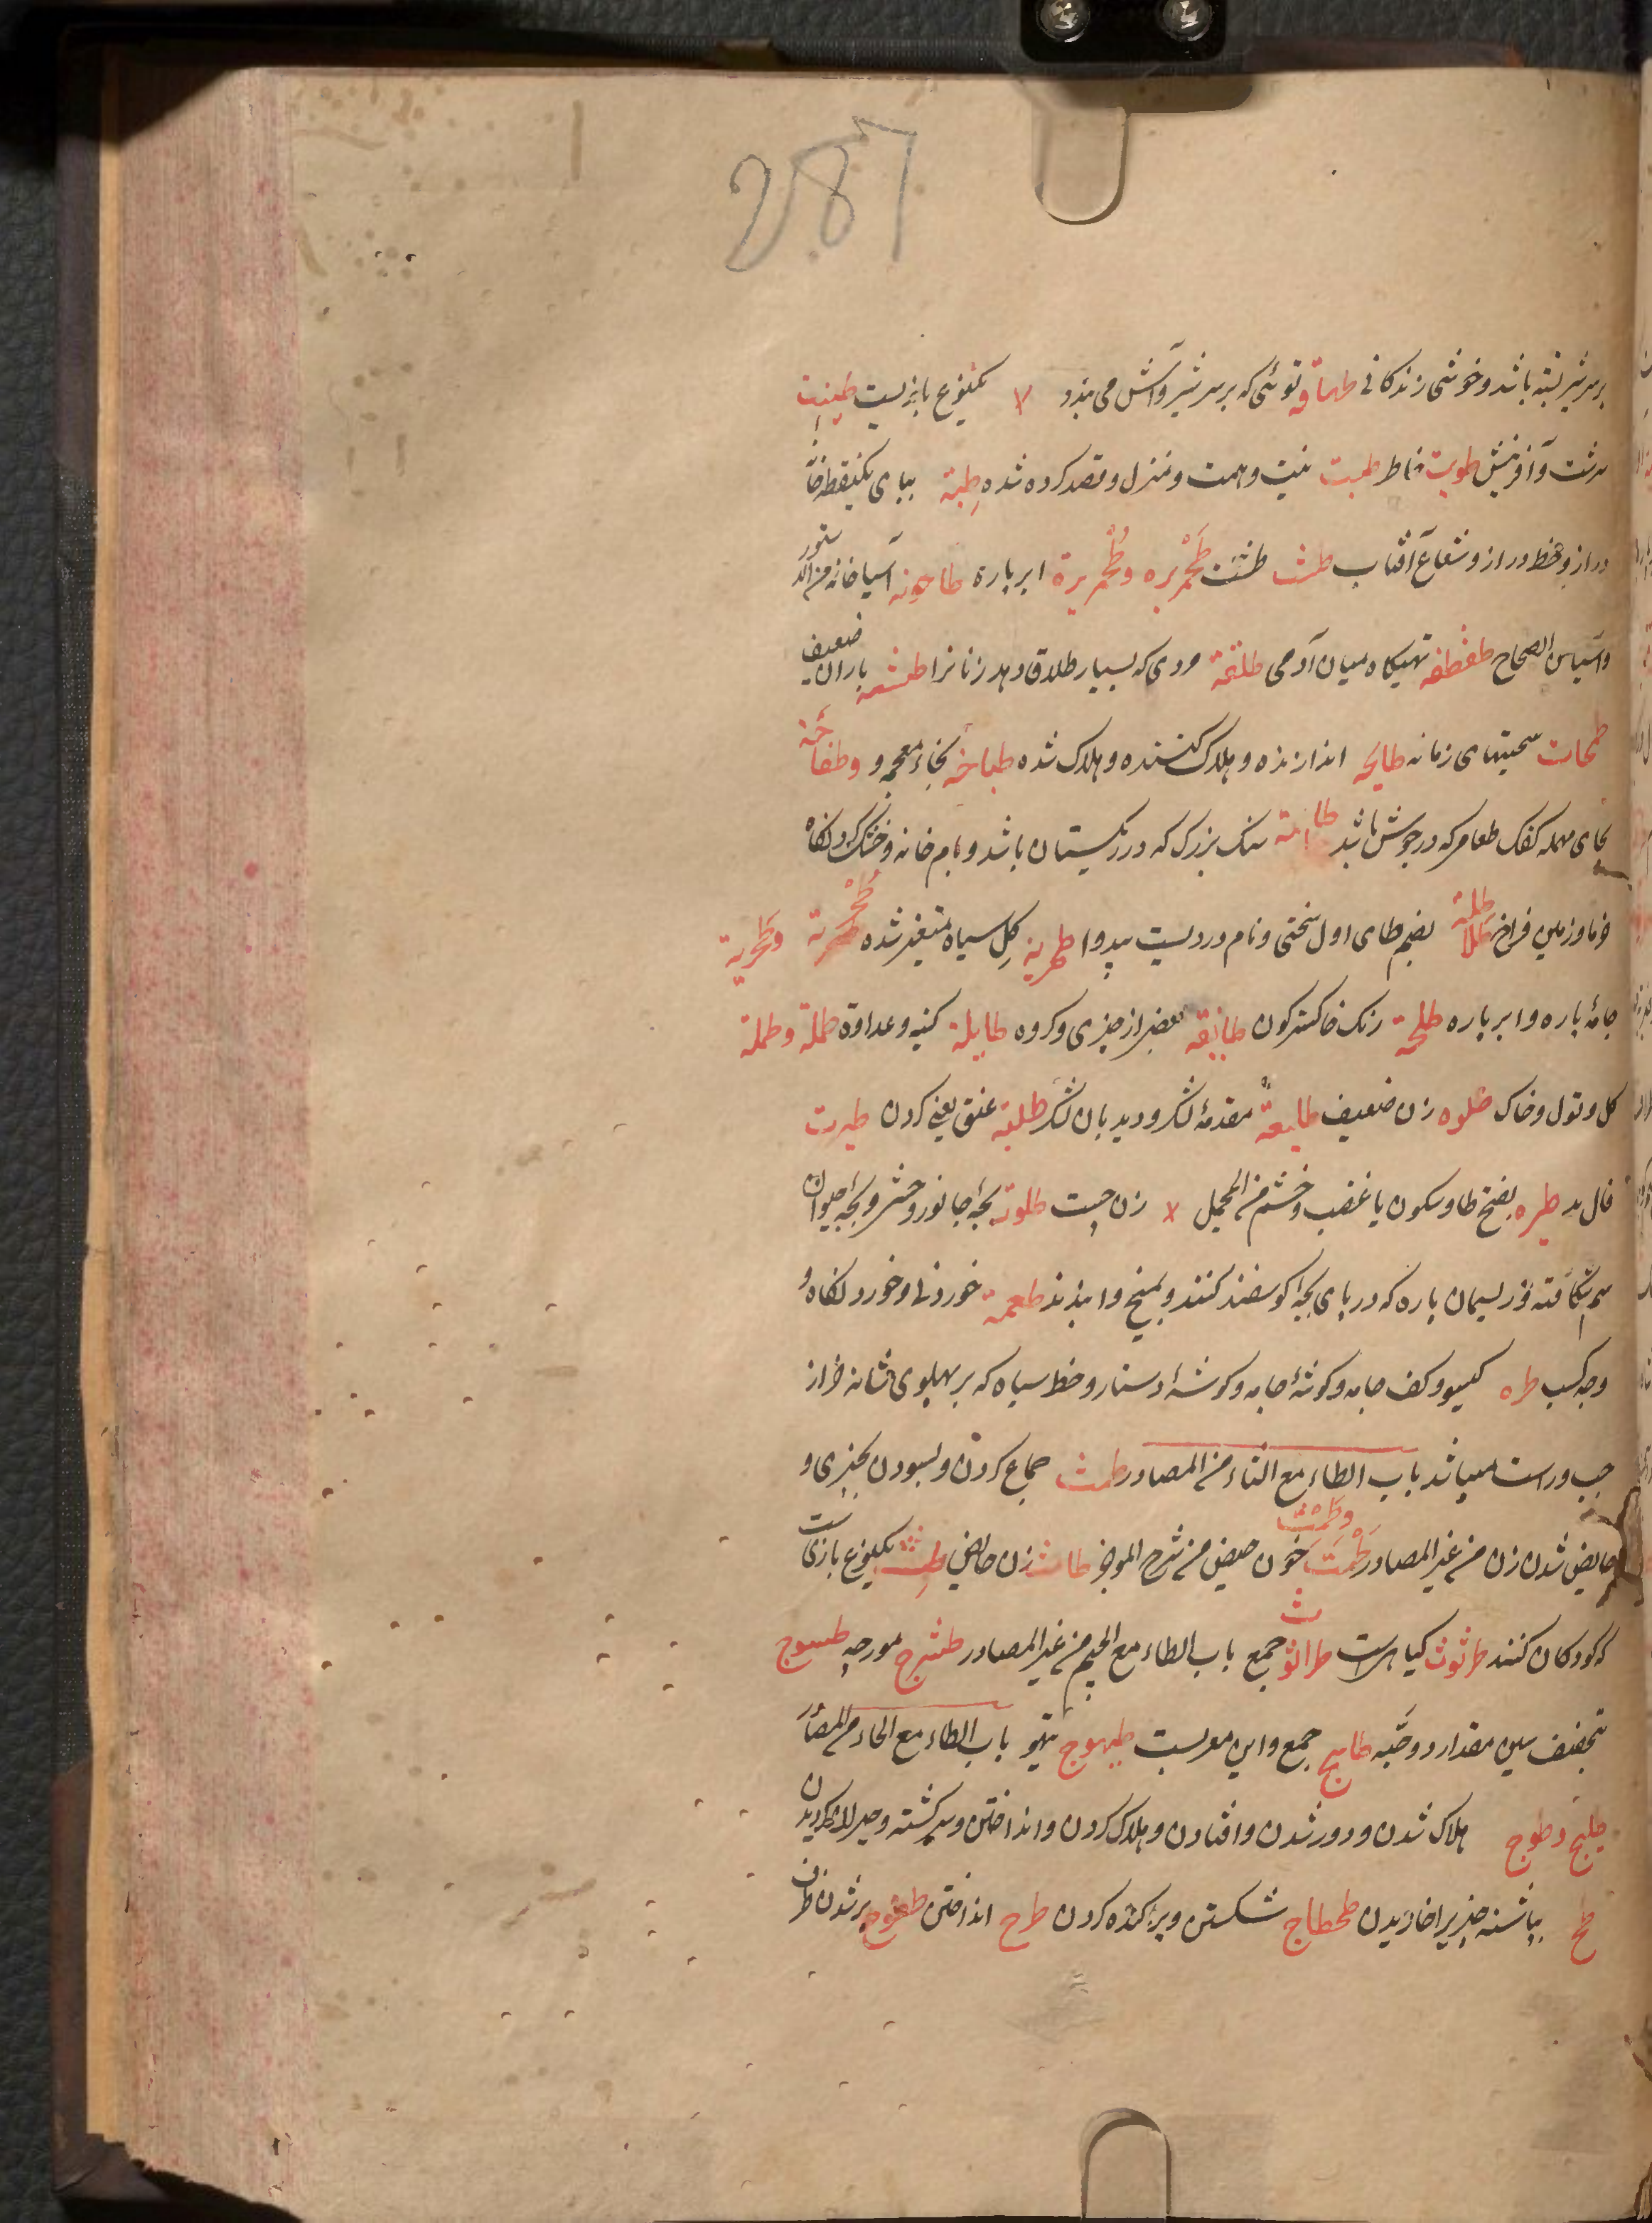 287
بر سر شیر بسته باشد و خوشی زندگانی طهاقه توئی که بر سر شیر و آش می بندد لا یکنوع بازیست طینت
سرشت و آفرینش طویت خاطر طیت نیت و همت و منزل و قصد کرده شده طبة ببای یکنقطه خانه
دراز و خط دراز و شعاع آفتاب طشت طشت طحمریره وطحمریرة ابر پاره طاحونه آسیا خانه ستور
و آسیاس الصحاح طفطفه تهیکاه میان آدمی طلقة مردی که بسیار طلاق دهد زنانرا طشه باران ضعیف
طحات سختیهای زمانه طایحه اندازنده و هلاک کننده و هلاک شده طباخه بخاء معجمه و وطفاحة
بحای مهمله کفک طعام که در جوش باشد سنک بزرک که در ریکستان باشد و بام خانه و خشک کردنگاه
خرما و زمین فراخ طلاطلة بضم طای اول سختی و نام دردیست بیدوا طهریه کل سیاه متغیر شده وطحریة
جامۀ پاره و ابر پاره طلحة رنک خاکستر کون طایقه بعضی از چیزی و کروه طایلة کینه و عداوة طملة وطملة
کل و خاک طلوه زن ضعیف طلیعة مقدمۀ لشکر و دیدبان لشکر طلبة عنق یعنی کردن طیرت
فال بد طیره بفتح طا و سکون یا غضب و خشم من المجمل لا زن چست طلوة بچۀ جانور وحشی و بچۀ حیوان
سم شکافته و ریسمان پاره که در پای بچه کوسفند کنند و بمیخ وا بندند طعمة خوردنی و خوردنکاه و
وجه کسب طره کیسو و کف جامه و کوشۀ جامه و کوشۀ دستار و خط سیاه که بر پهلوی شانه خر از
چپ و راست میباشد باب الطاء مع الثاء من المصادر طمث جماع کردن و بسودن بچیزی و
حایض شدن زن من غیر المصادر طمث وطمث خون حیض من شرح الموجز طامث زن حایض طث یکنوع بازیست
که کودکان کنند طرثوث کیاهیست طراثیث جمع باب الطاء مع الجیم من غیر المصادر طثرج مورچه طسوج
بتخفیف سین مقدار دو حبّه طاسج جمع و این معربست طیهوج تیهو باب الطاء مع الحاء من المصادر
طیح وطوح هلاک شدن و دور شدن و افتادن و هلاک کردن و انداختن و سرکشته و حیران کردیدن
طح بپاشنه چیزیرا خاریدن طحطاح شکستن و پراکنده کردن طرح انداختن طفوح پر شدن ظرف